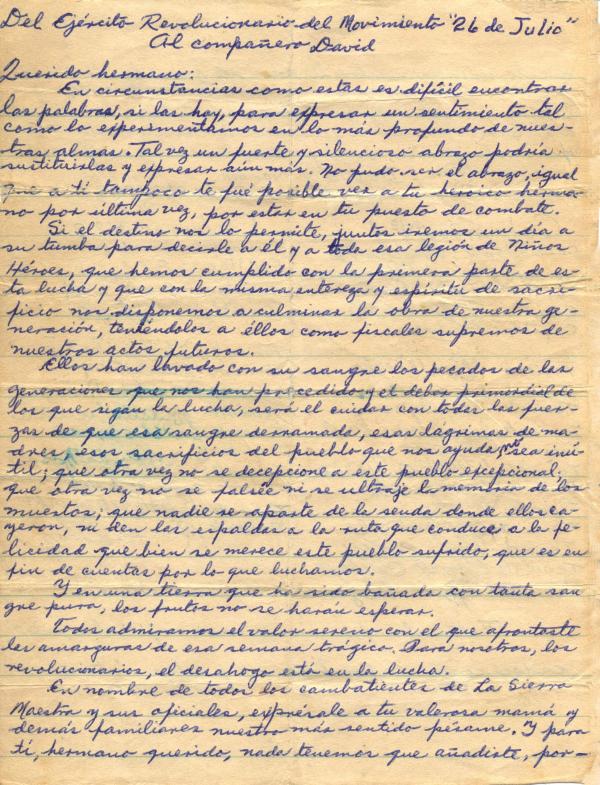 Del Ejército Revolucionario del Movimiento "26 de Julio"
Al compañero David
Querido hermano:
En circunstancias como estas es difícil encontrar
las palabras, si las hay, para expresar un sentimiento tal
como lo experimentamos en lo más profundo de nues-
tras almas. Tal vez un fuerte y silencioso abrazo podría
sustituirlas y expresar aún más. No pudo ser el abrazo, igual
que a ti tampoco te fué posible ver a tu heroico herma-
no por última vez, por estar en tu puesto de combate.
Si el destino nos lo permite, juntos iremos un día a
su tumba para decirle a él y a toda esa legión de Niños
Héroes, que hemos cumplido con la primera parte de es-
ta lucha y que con la misma entereza y espíritu de sacri-
ficio nos disponemos a culminar la obra de nuestra ge-
neración, teniéndolos a éllos como fiscales supremos de
nuestros actos futuros.
Ellos han lavado con su sangre los pecados de las
generaciones que nos han precedido y el deber primordial de
los que sigan la lucha, será el cuidar con todas las fuer-
zas de que esa sangre derramada, esas lágrimas de ma-
dres y esos sacrificios del pueblo que nos ayuda, no sea inú-
til; que otra vez no se decepcione a este pueblo excepcional;
que otra vez no se falsée ni se ultraje la memoria de los
muertos; que nadie se aparte de la senda donde ellos ca-
yeron, ni den las espaldas a la ruta que conduce a la fe-
licidad que bien se merece este pueblo sufrido, que es en
fin de cuentas por lo que luchamos.
Y en una tierra que ha sido bañada con tanta san
gre pura, los frutos no se harán esperar.
Todos admiramos el valor sereno con el que afrontaste
las amarguras de esa semana trágica. Para nosotros, los
revolucionarios, el desahogo está en la lucha.
En nombre de todos los combatientes de La Sierra
Maestra y sus oficiales, exprésale a tu valerosa mamá y
demás familiares nuestro más sentido pésame. Y para
tí, hermano querido, nada tenemos que añadirte, por-